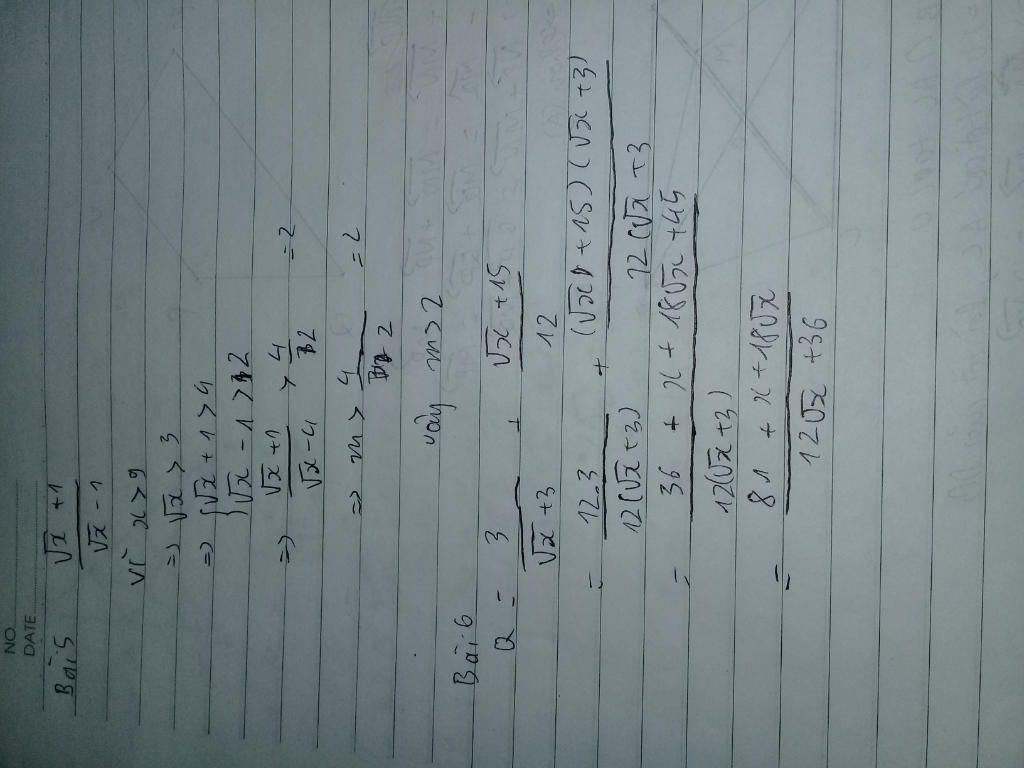 NO.
DATE
Bài 5 (√x + 1)/(√x - 1)
Vì x > 9
=> √x > 3
=> { √x + 1 > 4
{ √x - 1 > 2
=> (√x + 1)/(√x - 4) > 4/2 = 2
=> m > 4/2 = 2
vậy m > 2
Bài 6
Q = 3/(√x + 3) + (√x + 15)/12
= 12.3/(12(√x + 3)) + (√x + 15)(√x + 3)/(12(√x + 3
= (36 + x + 18√x + 45)/(12(√x + 3))
= (81 + x + 18√x)/(12√x + 36)